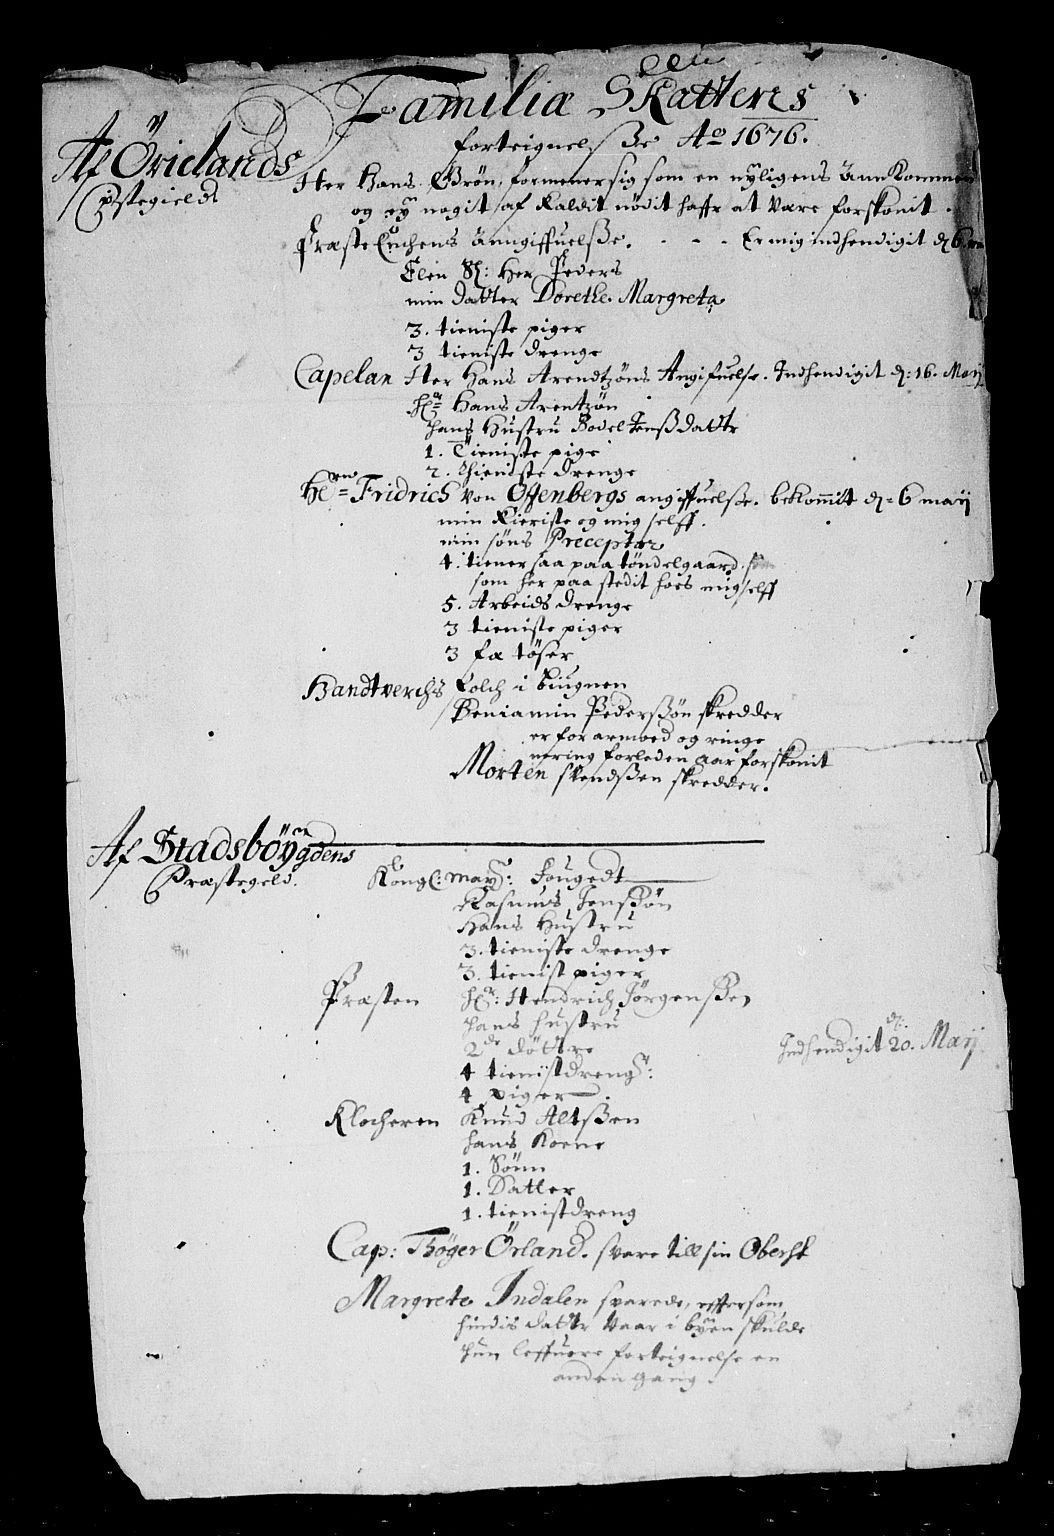 Familiæ Skattens
forteignelsße Ao 1676.
Af Örielands
Pstegieldt
Her Hans Grön, formener sig som en nyligens ann Kommen
og ey nogit af Kaldit nödit haffr at vare forskonit.
Præste Enchens anngiffuelsße. - - - Er mig indhendigit d 6
Elen Sl: Her Peders
min datter Dorethe Margreta
3. tieniste piger
3 tieniste drenge
Capelan Her Hans Arendtzöns Angifuelse. Indhendigit d: 16. Maij
Hr Hans Arentzön
hans Hustru Bodel Jenßdattr
1. Tieniste pige
2. thieniste drenge
Hern Fridrich von Offenbergs angiffuelse. bekommit d. 6 maij
min Kieriste og mig selff.
min söns Preceptor
4. tiener saa paa töndelgaard
som her paa stedit hoes mig selff
5. Arbeids drenge
3 tieniste piger
3 fæ töser
Handtverchs Folch i biugnen
Beniamin Pederßön skredder
er for armoed og ringe
nering forleden aar forskonit
Morten svendßen skredder.
Af Stadsböygdens
Præstegeld.
Kongl: mayts: Fougedt
Rasmus Jenßön
Hans Hustru
3. tieniste drenge
3. tienist piger
Præsten Hr: Hendrich Jörgenßen
hans hustru
2de döttre
Indhendigit d. 20. Maij
4 tienistdrengr:
4 piger
Klocheren Knud Altßen
hans Koene
1. Sönn
1. Datter
1. tienistdreng
Cap: Thöger Örland. svare till sin Oberst
Margrete Indalen svarede, effersom
hindis dattr vaar i byen skulde
hun leffuere forteignelse en
anden gang.